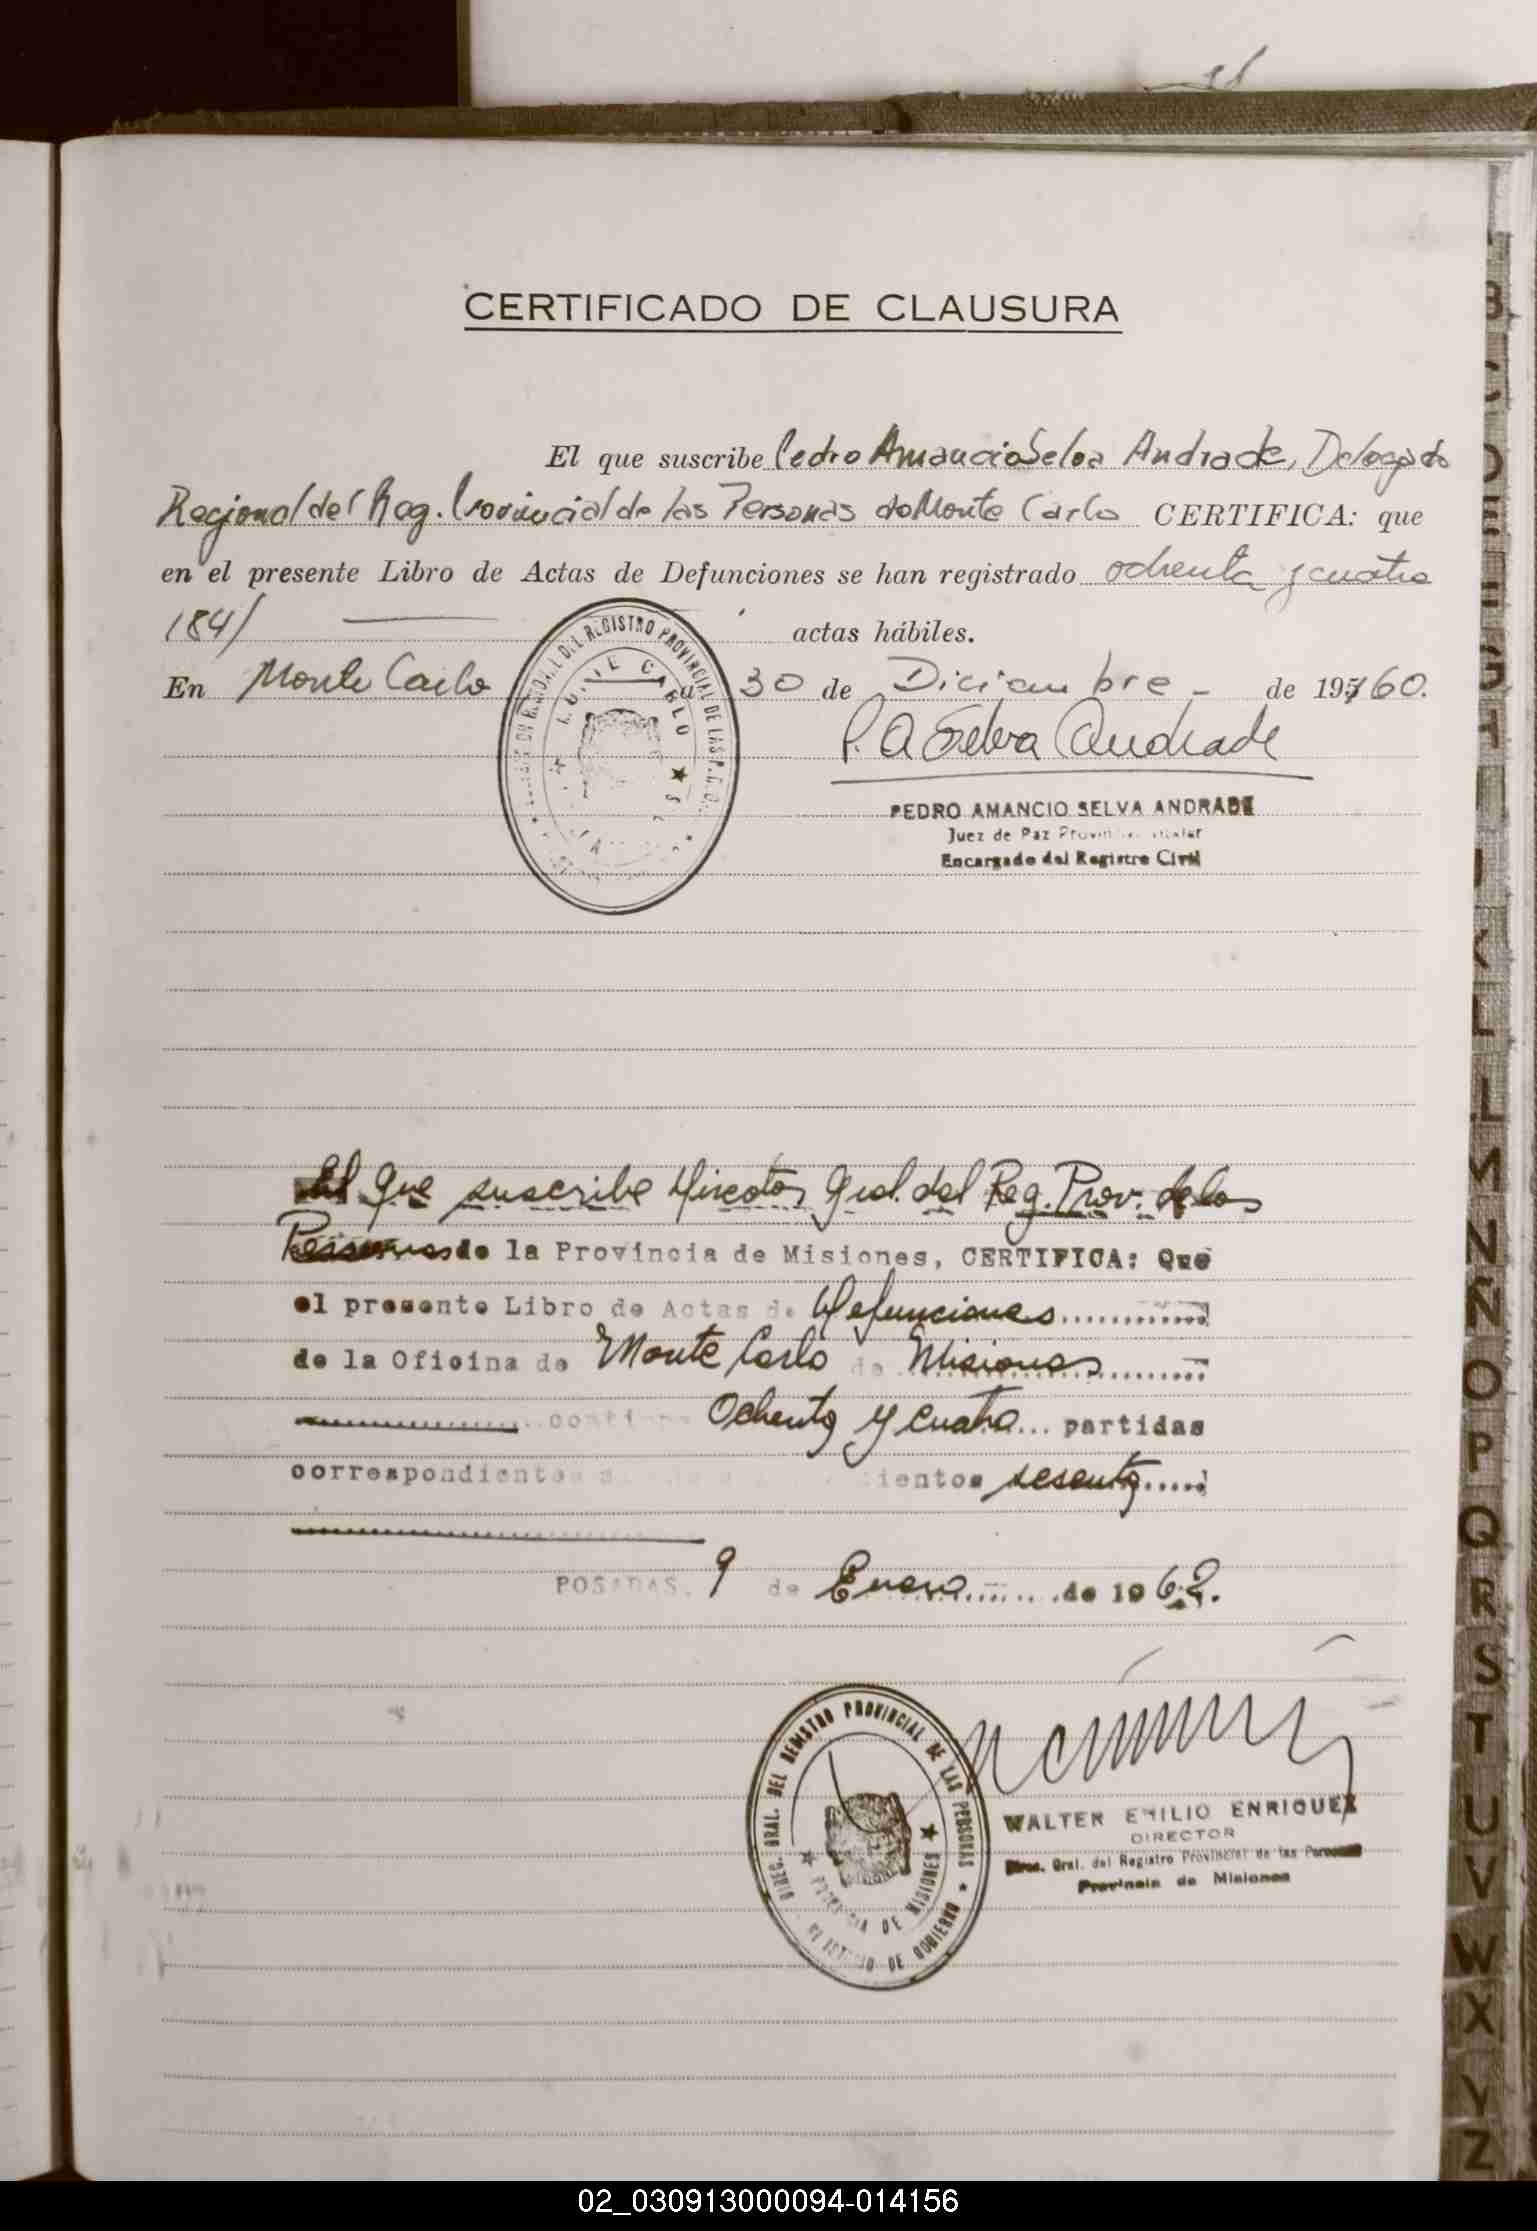 CERTIFICADO DE CLAUSURA
El que suscribe Pedro Amancio Selva Andrade, Delegado
Regional del Reg. Provincial de las Personas de Monte Carlo CERTIFICA: que
en el presente Libro de Actas de Defunciones se han registrado ochenta y cuatro
(84) actas hábiles.
En Monte Carlo a 30 de Diciembre - de 195/60.
P. A Selva Andrade
PEDRO AMANCIO SELVA ANDRADE
Juez de Paz
Encargado del Registro Civil
REGISTRO PROVINCIAL DE LAS P.
MONTE CARLO
El que suscribe Director Gral. del Reg. Prov. de las
Personas de la Provincia de Misiones, CERTIFICA: Que
el presente Libro de Actas de Defunciones
de la Oficina de Monte Carlo de Misiones
contiene Ochenta y cuatro partidas
correspondientes sesenta
POSADAS, 9 de Enero de 1962.
DIREC. GRAL. DEL REGISTRO PROVINCIAL DE LAS PERSONAS
PROVINCIA DE MISIONES
DE GOBIERNO
WALTER EMILIO ENRIQUEZ
DIRECTOR
Direc. Gral. del Registro Provincial de las Personas
Provincia de Misiones
B
C
D
E
F
G
H
I
K
L
LL
M
N
Ñ
O
P
Q
R
S
T
U
V
W
X
Y
Z
02_030913000094-014156